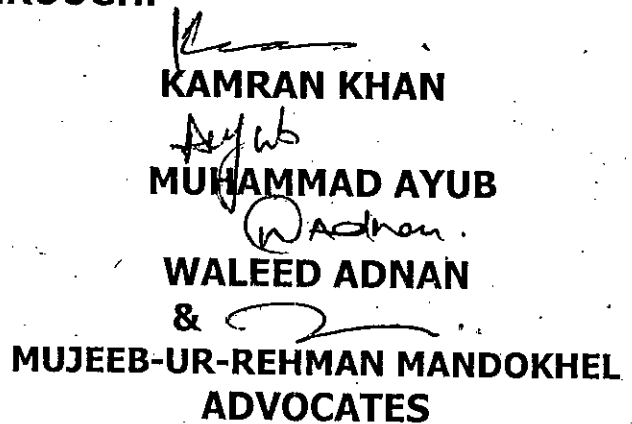 KAMRAN KHAN
Ayub
MUHAMMAD AYUB
W Adnan.
WALEED ADNAN
&
MUJEEB-UR-REHMAN MANDOKHEL
ADVOCATES